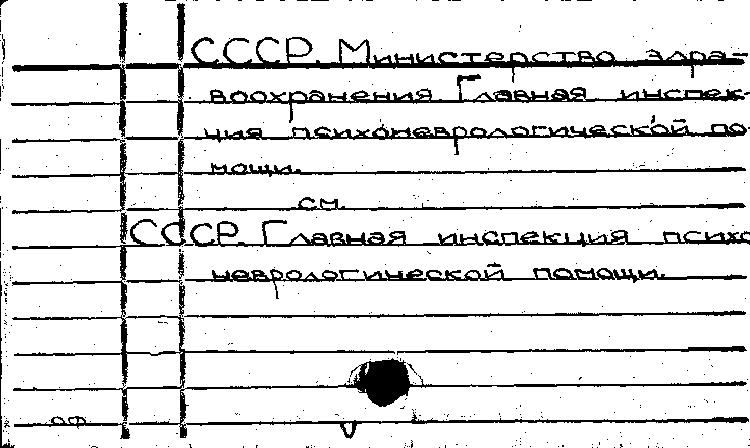 СССР. Министерство здра-
воохранения Главная инспек-
ция психоневрологической по-
мощи.
см.
СССР. Главная инспекция психо
неврологической помощи.
ОФ